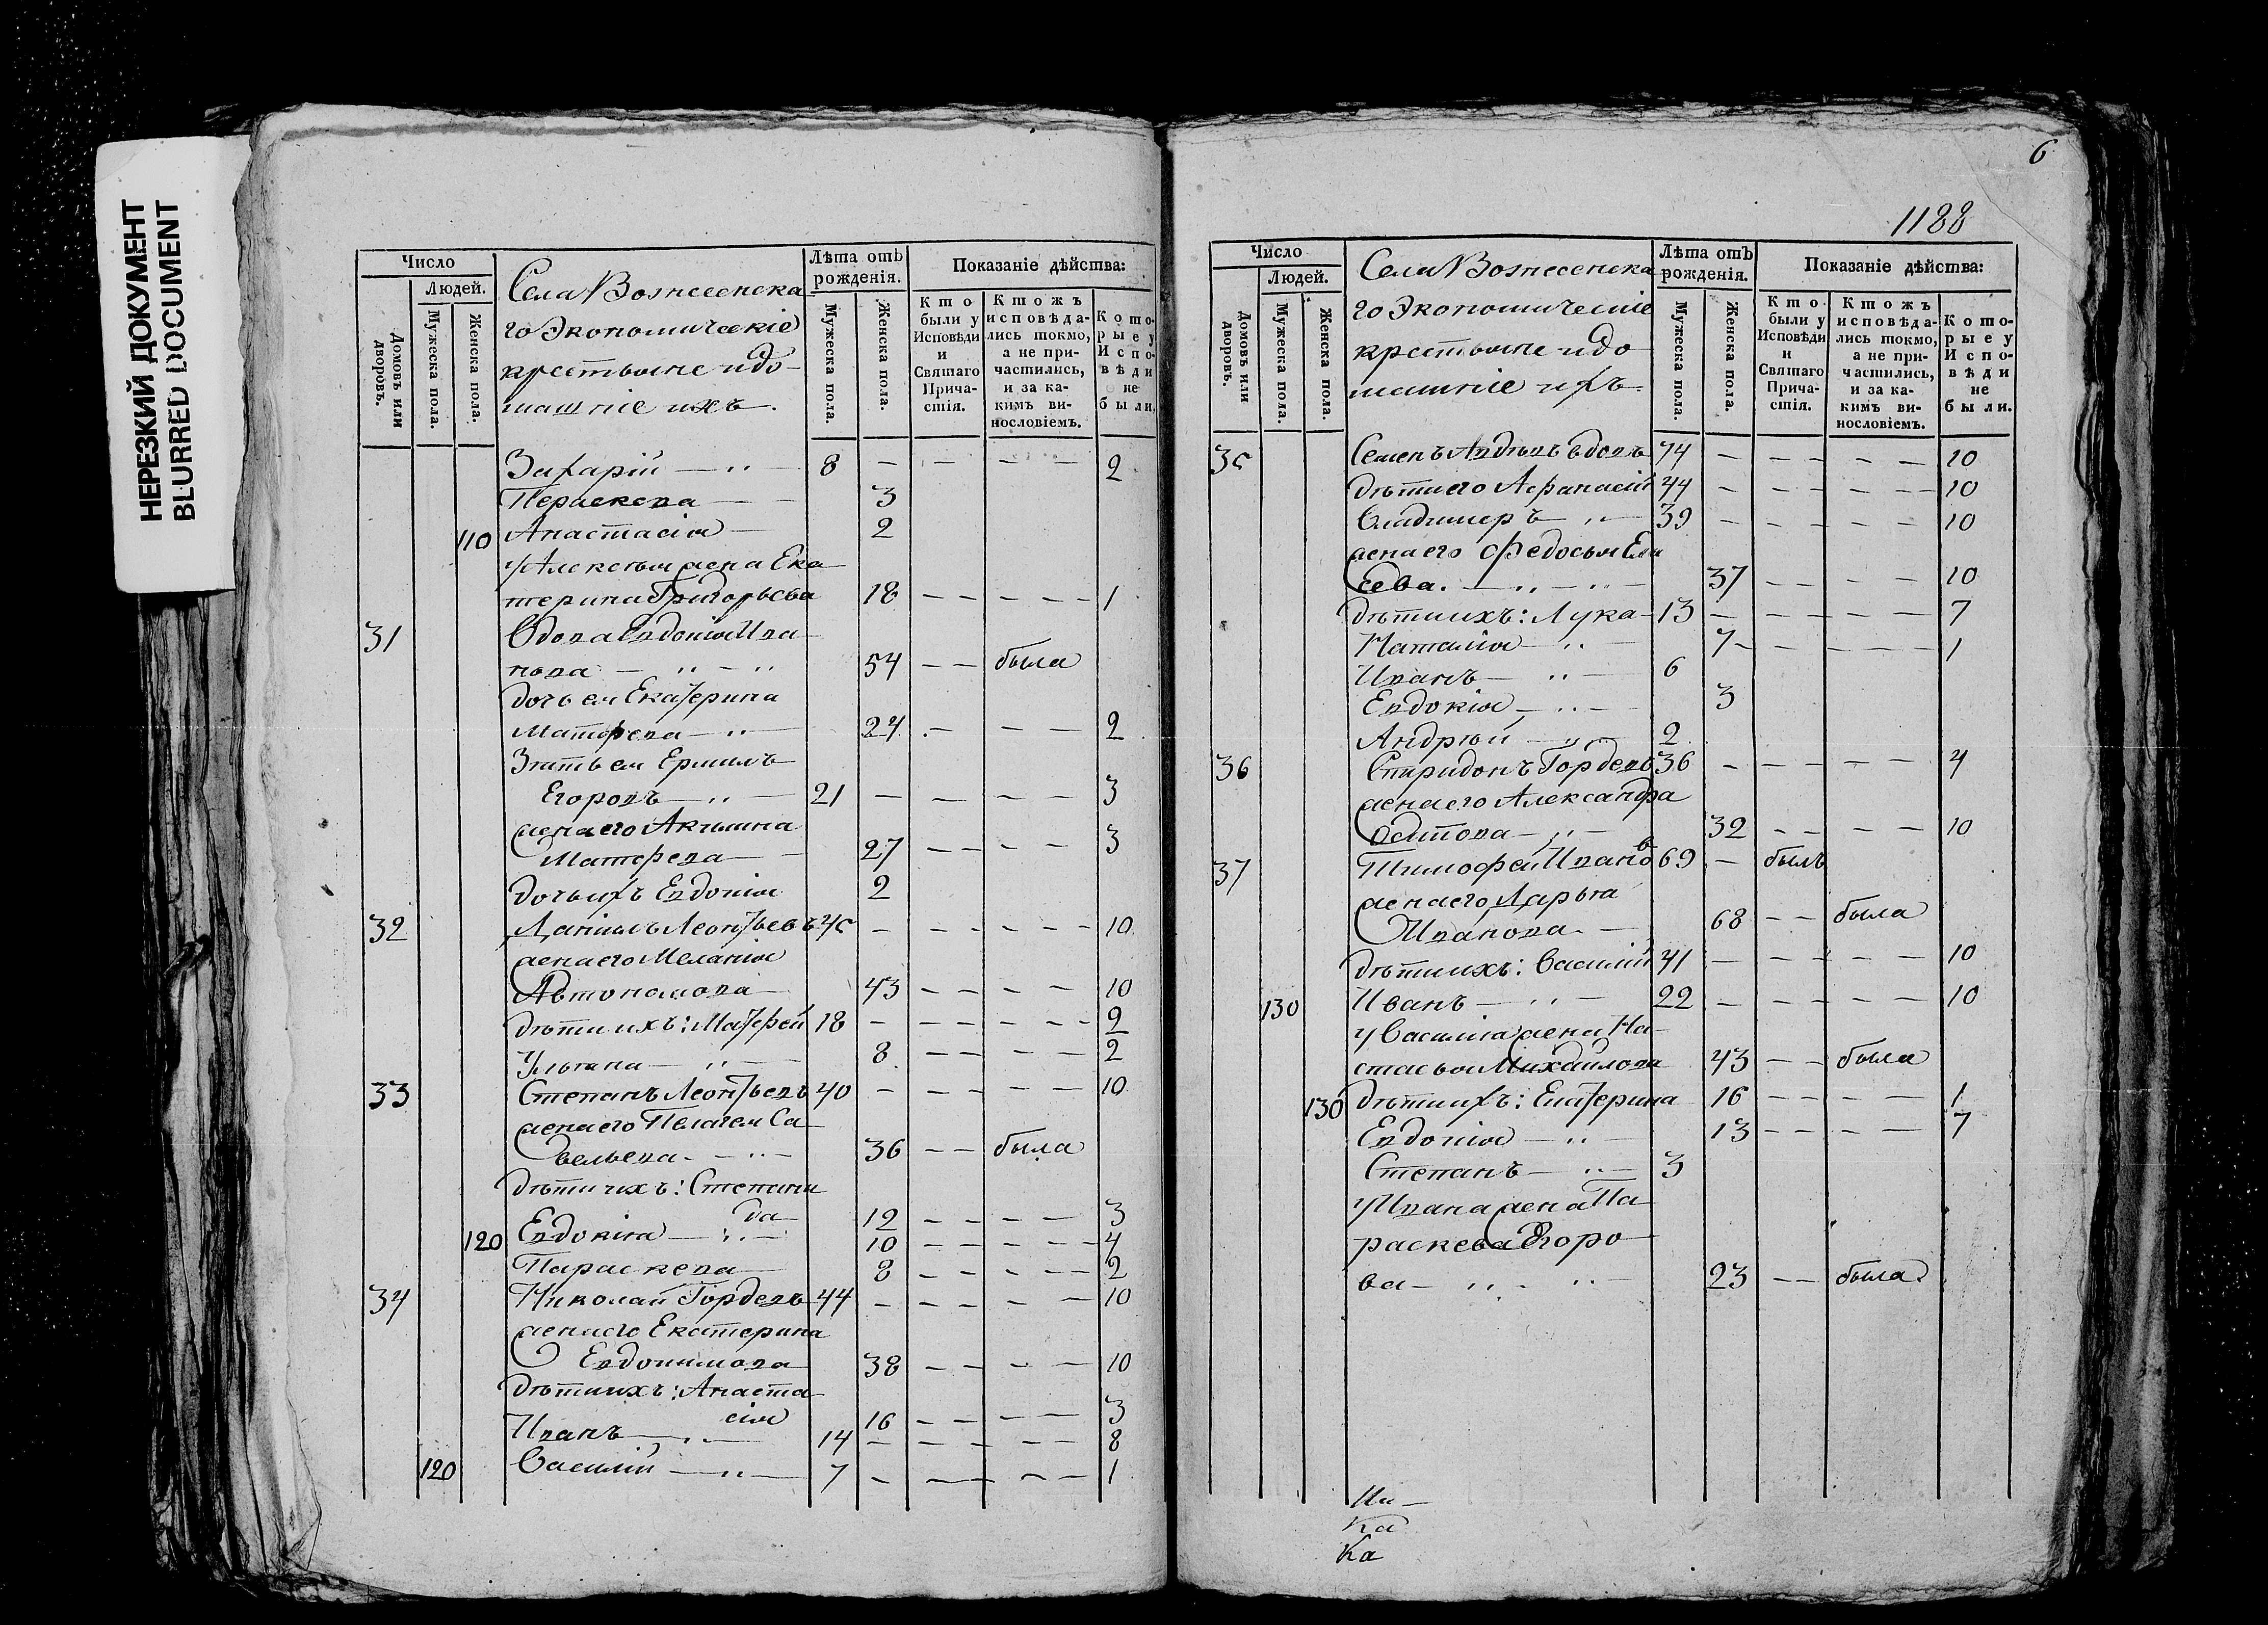 НЕРЕЗКИЙ ДОКУМЕНТ
BLURRED DOCUMENT
Число
Людей.
Домовъ или дворовъ.
Мужеска пола.
Женска пола.
Села Вознесенска
го Экономическіе
крестьяне и до-
машніе ихъ.
Лѣта отъ рожденія.
Мужеска пола.
Женска пола.
Показаніе дѣйства:
Кто были у Исповѣди и Святаго Причастія.
Ктожъ исповѣдались токмо, а не причастились, и за какимъ винословіемъ.
Которые у Исповѣди не были.
Захарій — „ — 8 — — — — 2
Пераскева — — 3
110 Анастасія — 2
у Алексѣя жена Ека
терина Григорьева 18 — — — — — 1
31 Вдова Евдокія Ива
нова — „ — „ 54 — — была
дочь ея Екатерина
Матфева — „ — 24 — — — 2
Зять ея Ермилъ
Егоровъ — „ — 21 — — — — 3
жена его Акилина
Матфева — — 27 — — — — 3
дочь ихъ Евдокія 2
32 Даніилъ Леонтьевъ 45 — — — — — — 10
жена его Меланія
Автономова 43 — — — — 10
дѣти ихъ: Матфей 18 — — — — — — 9
Ульяна — „ — 8 — — — — 2
33 Степанъ Леонтьевъ 40 — — — — — 10
жена его Пелагея Са
вельева — „ — 36 — — была
дѣти ихъ: Степани
да 12 — — — — 3
120 Евдокія — „ — 10 — — — — — 4
Параскева — 8 — — — — 2
34 Николай Гордевъ 44 — — — — — 10
жена его Екатерина
Евдокимова 38 — — — — 10
дѣти ихъ: Анаста
сія 16 — — — — 3
Иванъ — „ — 14 — — — — — 8
120 Василій — „ — 7 — — — — — 1
6
1188
Число
Людей.
Домовъ или дворовъ.
Мужеска пола.
Женска пола.
Села Вознесенска
го Экономическіе
крестьяне и до
машніе ихъ
Лѣта отъ рожденія.
Мужеска пола.
Женска пола.
Показаніе дѣйства:
Кто были у Исповѣди и Святаго Причастія.
Ктожъ исповѣдались токмо, а не причастились, и за какимъ винословіемъ.
Которые у Исповѣди не были.
35 Семенъ вдовъ 74 — — — — — 10
дѣти его Афанасій 44 — — — — — — 10
Владимеръ — „ — 39 — — — — — 10
жена его Федосья Ели
сева. — „ — „ — 37 — — — — 10
дѣти ихъ: Лука — 13 — — — — — 7
Наталія — „ — 7 — — — — — — 1
Иванъ — „ — 6
Евдокія — „ — 3
Андрѣй — „ — 2
36 Спиридонъ Гордевъ 36 — — — — — 4
жена его Александра
Осипова — „ — 32 — — — — 10
37 Тимофей Ивановъ 69 — былъ
жена его Дарья
Иванова — 68 — — была
дѣти ихъ: Василій 41 — — — — — 10
130 Иванъ — „ — 22 — — — — — 10
у Василія жена На
стасья Михайлова 43 — — была
130 дѣти ихъ: Екатерина 16 — — — — 1
Евдокія — „ — 13 — — — — — 7
Степанъ — „ — 3
у Ивана жена Па
раскева Егоро
ва — „ — „ — 23 — — была
ка
ка